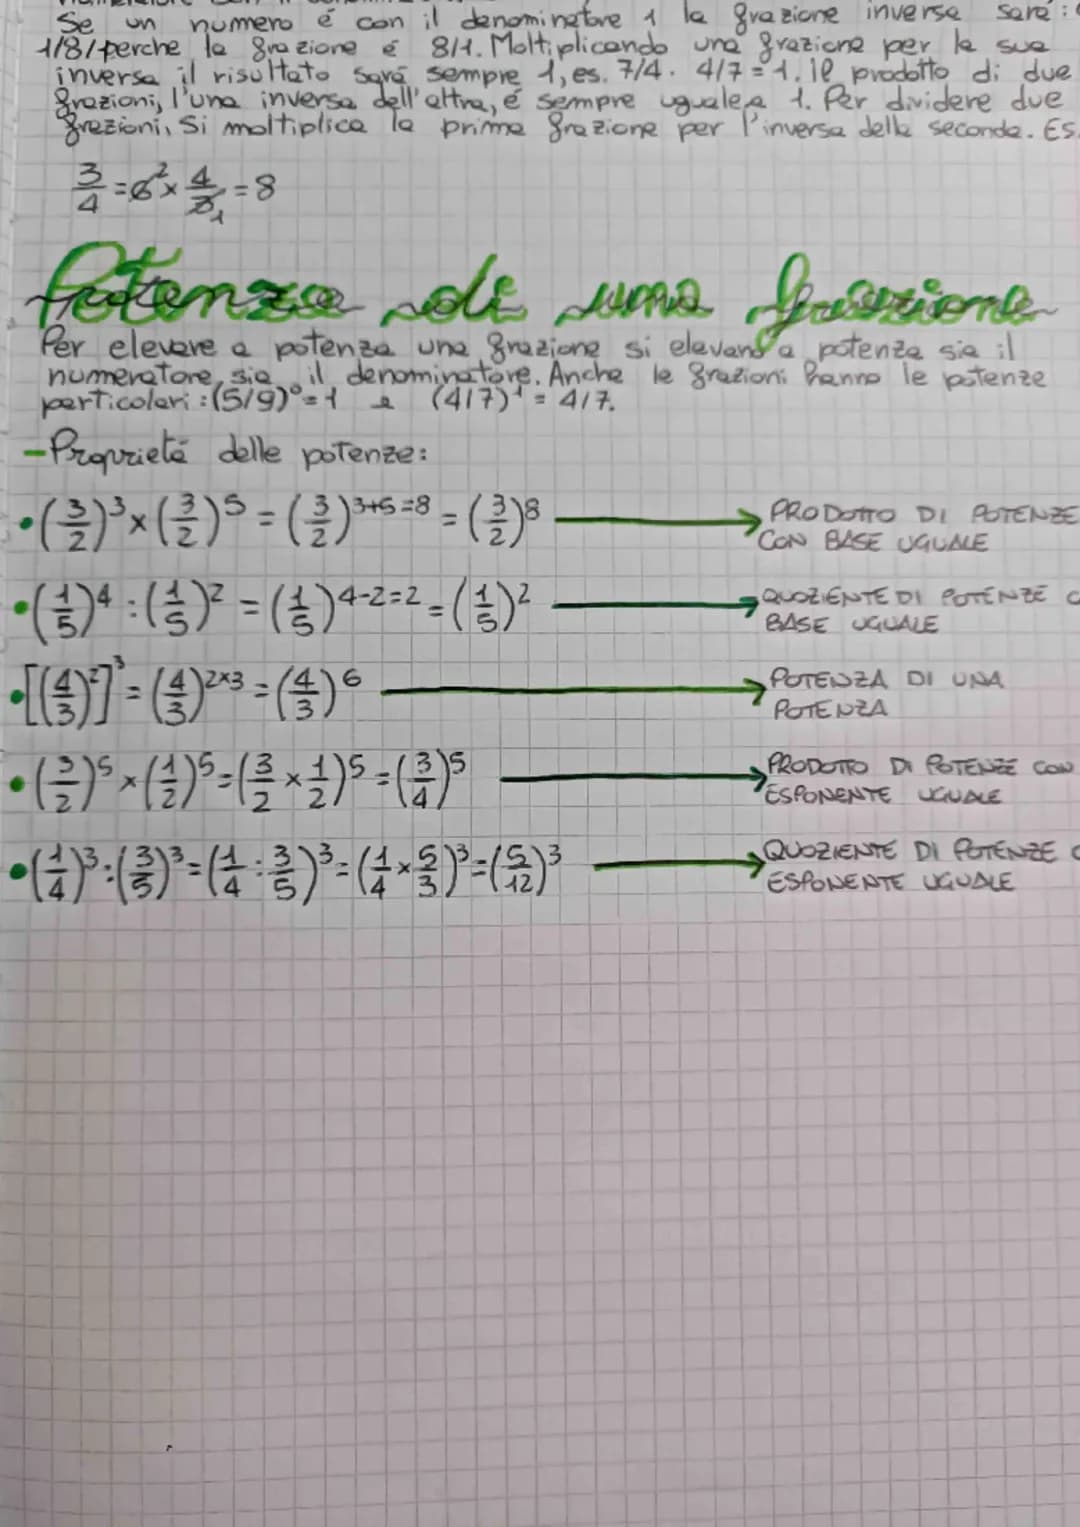 Se un numero é con il denominatore 1 la frazione inversa sará:
1/8/perche la frazione é 8/1. Moltiplicando una frazione per la sua
inversa il risultato sará sempre 1, es. 7/4 · 4/7 = 1. Il prodotto di due
frazioni, l'una inversa dell'altra, é sempre uguale a 1. Per dividere due
frazioni, si moltiplica la prima frazione per l'inversa della seconda. Es.
3/4 = 6² × 4/3₁ = 8
Potenza di una frazione
Per elevare a potenza una frazione si elevano a potenza sia il
numeratore, sia il denominatore. Anche le frazioni hanno le potenze
particolari: (5/9)⁰ = 1 e (4/7)¹ = 4/7.
- Proprietá delle potenze:
• (3/2)³ × (3/2)⁵ = (3/2)³⁺⁵⁼⁸ = (3/2)⁸ → PRODOTTO DI POTENZE
CON BASE UGUALE
• (1/5)⁴ : (1/5)² = (1/5)⁴⁻²⁼² = (1/5)² → QUOZIENTE DI POTENZE C
BASE UGUALE
• [(4/3)²]³ = (4/3)²ˣ³ = (4/3)⁶ → POTENZA DI UNA
POTENZA
• (3/2)⁵ × (1/2)⁵ = (3/2 × 1/2)⁵ = (3/4)⁵ → PRODOTTO DI POTENZE CON
ESPONENTE UGUALE
• (1/4)³ : (3/5)³ = (1/4 : 3/5)³ = (1/4 × 5/3)³ = (5/12)³ → QUOZIENTE DI POTENZE C
ESPONENTE UGUALE